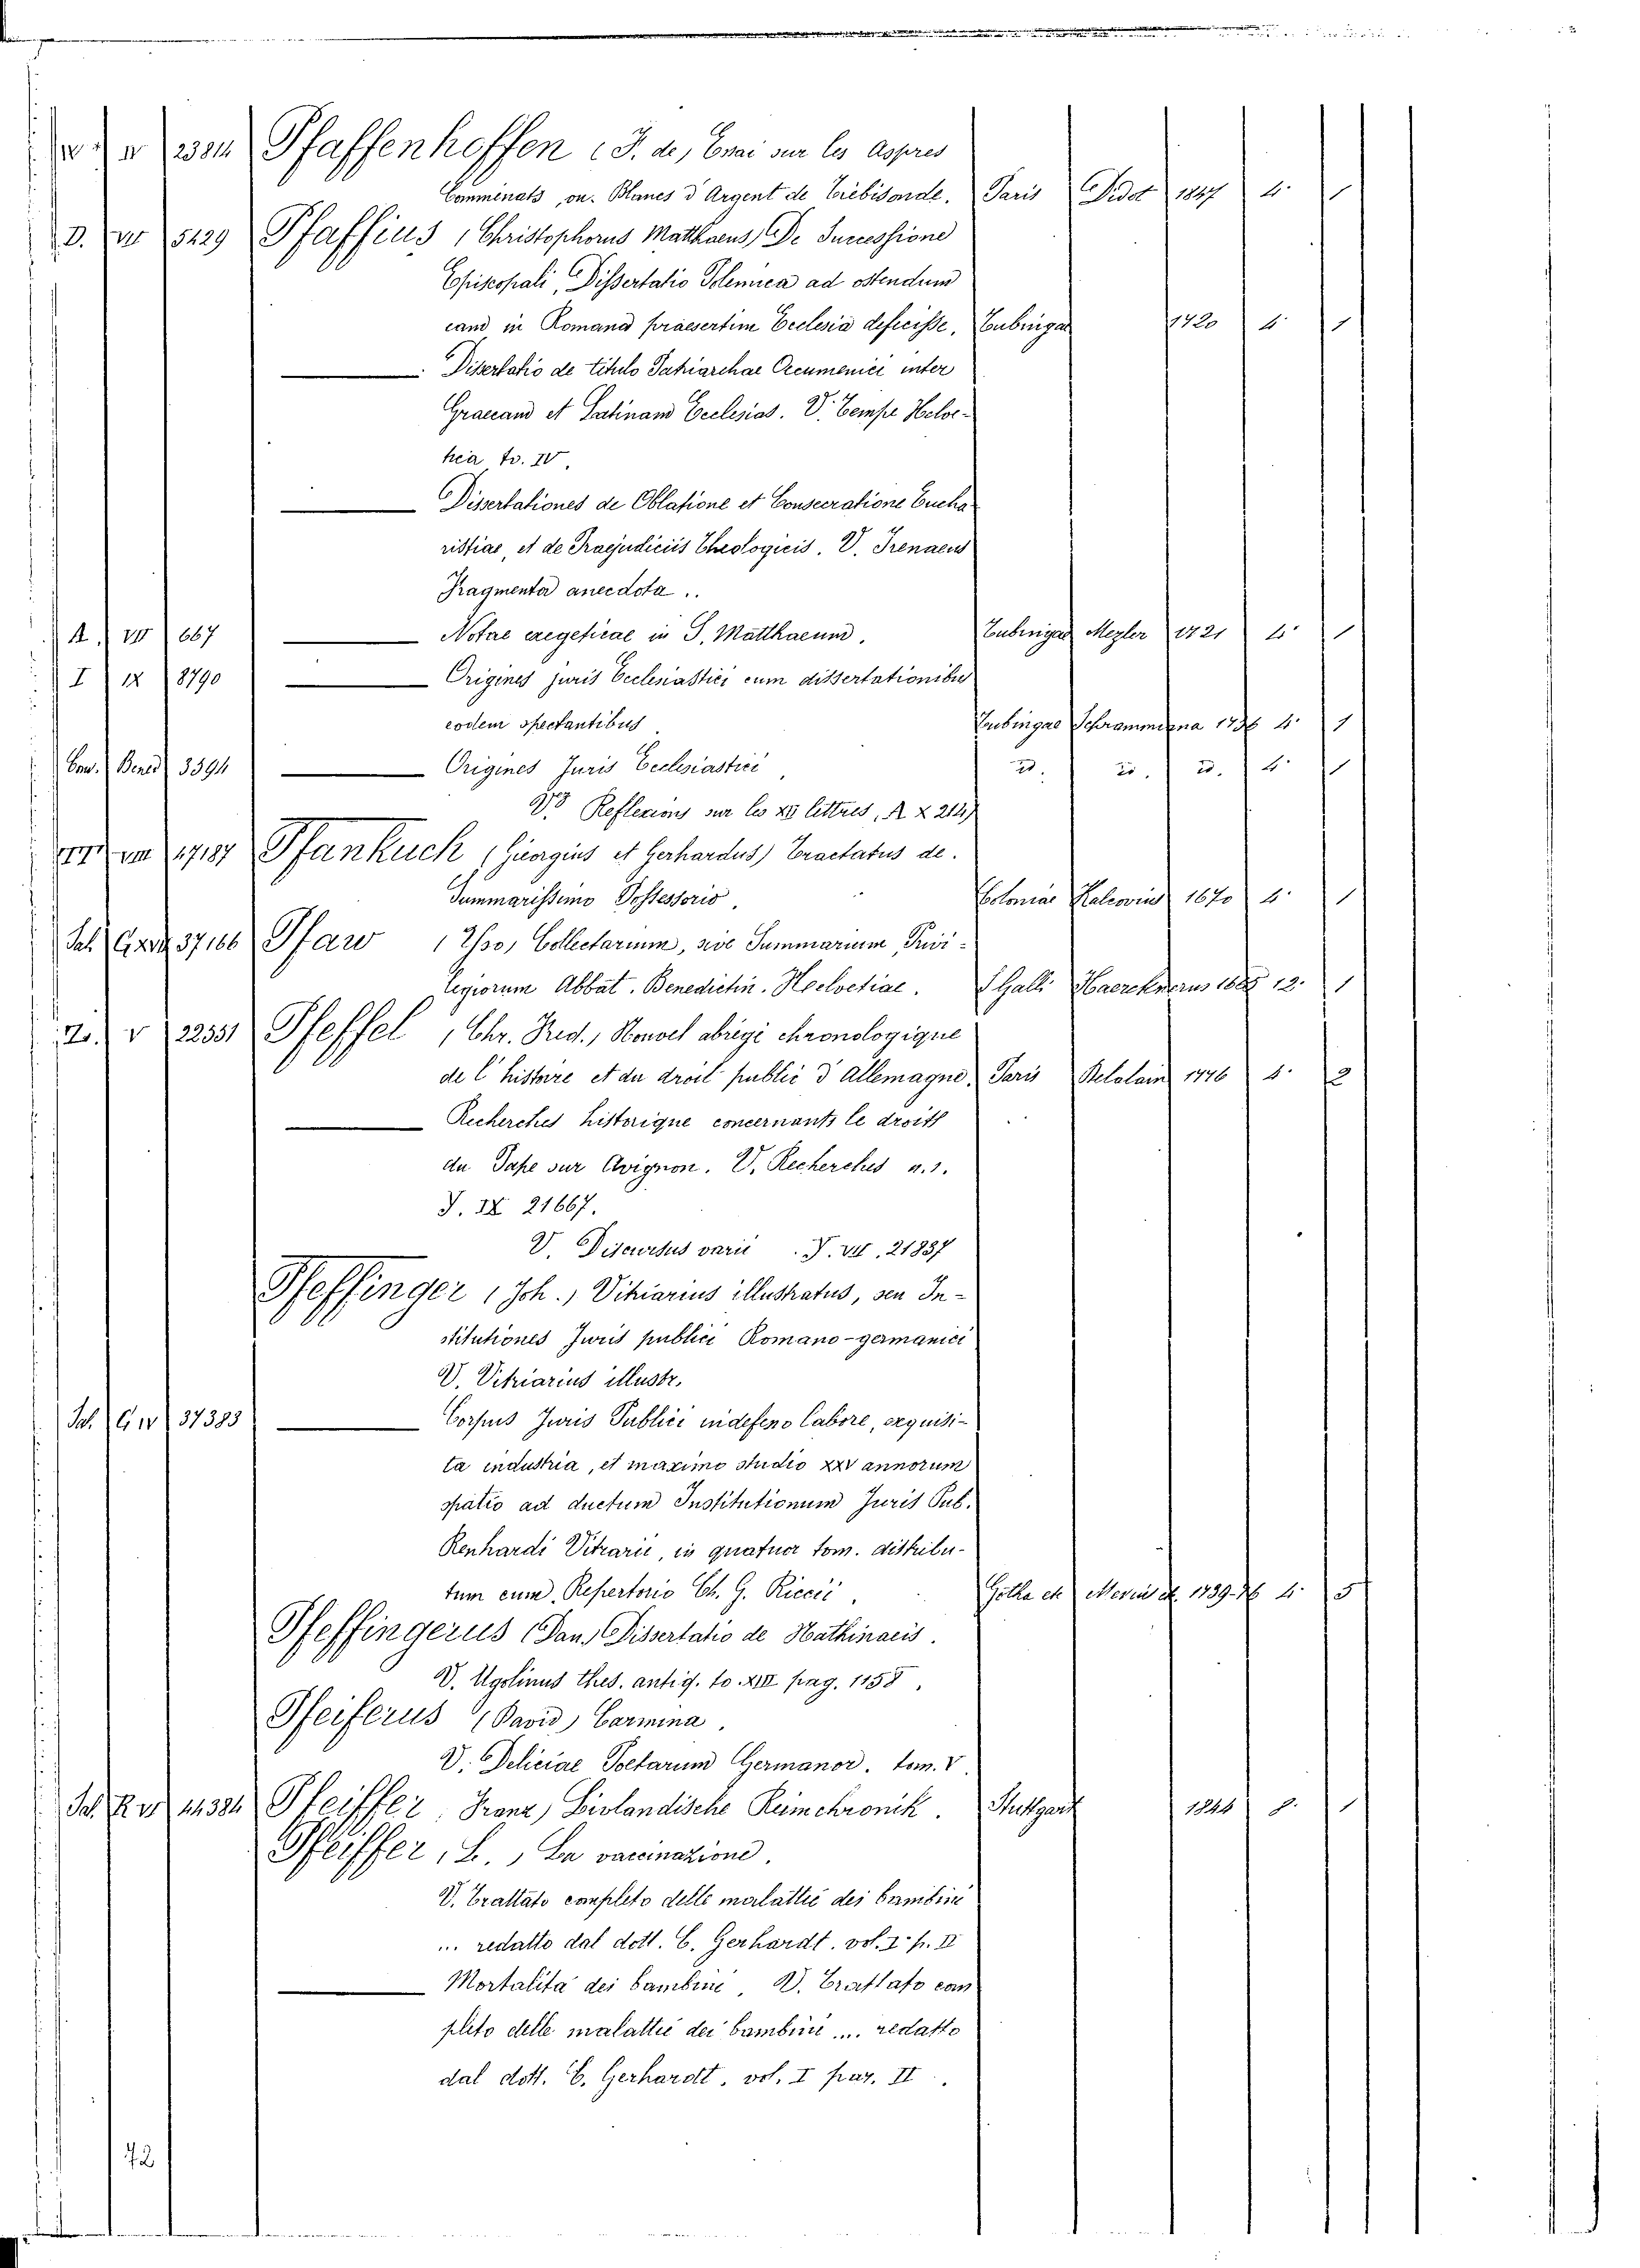 IV 23814 Pfaffenhoffen (J. de) Essai sur les Aspres
Comminats, ou. Blancs d'Argent de Trebisonde. Paris Didot 1847 4. 1
D. VII 5429 Pfaffius (Christophorus Matthaeus) De Successione
Episcopali, Dissertatio Polemica ad ostendum
eand in Romana praesertim Ecclesia defecisse, Tubingae 1720 4. 1
Disertatio de titulo Patriarchae Oecumenici inter
Graecam et Latinam Ecclesias. V. Tempe Helve-
tica to. IV.
Dissertationes de Oblatione et Consecratione Eucha
ristiae, et de Praejudiciis Theologicis. V. Irenaeus
Fragmenta anecdota..
A. VII 667 Notae exegeticae in S. Matthaeum. Tubingae Mezler 1721 4. 1
I IX 8790 Origines juris Ecclesiastici cum dissertationibus
eodem spectantibus Tubingae Schrammiana 1756 4. 1
Con. Bened 3394 Origines Juris Ecclesiastici, id. id. id. 4. 1
Reflexions sur les XII lettres, R X 2147
VIII 17187 Pfankuch (Giorgius et Gerhardus) Tractatus de.
Summarissimo Possessorio. Coloniae Kalcovius 1670 4. 1
Sal. 37166 Pfaw (Ipso) Collectarium, sive Summarium Privi-
legiorum Abbat. Benedictin. Helvetiae. S Galli 12. 1
V 22331 Pfeffel (Chr. Fred.) Nouvel abrégé chronologique
de l'histoire et du droit public d'Allemagne. Paris Delalain 1776 4. 2
Recherches historique concernants le droits
du Pape sur Avignon. V. Recherches a.1.
J. IX 21667.
V. Discursus varii. J. VII. 21837
Pfeffinger (Joh.) Vitriarius illustratus, seu In-
stitutiones Juris publici Romano-germanici
V. Vitriarius illustr.
Sal. G IV 37383 Corpus Juris Publici indefeso labore, exquisi-
ta industria, et maximo studio XXV annorum
spatio ad ductum Institutionum Juris Pub.
Renhardi Vitrarii, in quatuor tom. distribu-
tum cum Repertorio Ch. G. Riccii. Gotha 1739-76 4. 5
Pfeffingerus (Dan.) Dissertatio de Nathinaeis.
V. Ugolinus thes. antiq. to. XIII pag. 1158.
Pfeiferus (David) Carmina.
V. Deliciae Poetarum Germanor. tom. V.
Sal. R VI 44384 Pfeiffer, Franz, Livlandische Reimchronik. Stuttgart 1844 8. 1
Pfeiffer, L., La vaccinazione.
V. Trattato completo delle malattie dei bambini
... redatto dal dott. C. Gerhardt. vol. I p. II
Mortalità dei bambini, V. Trattato com
pleto delle malattie dei bambini .... redatto
dal dott. C. Gerhardt. vol. I par. II.
72